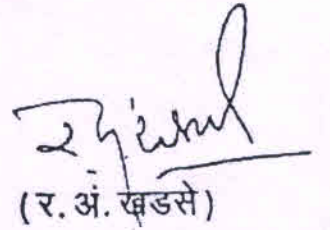 (र. अं. खडसे)